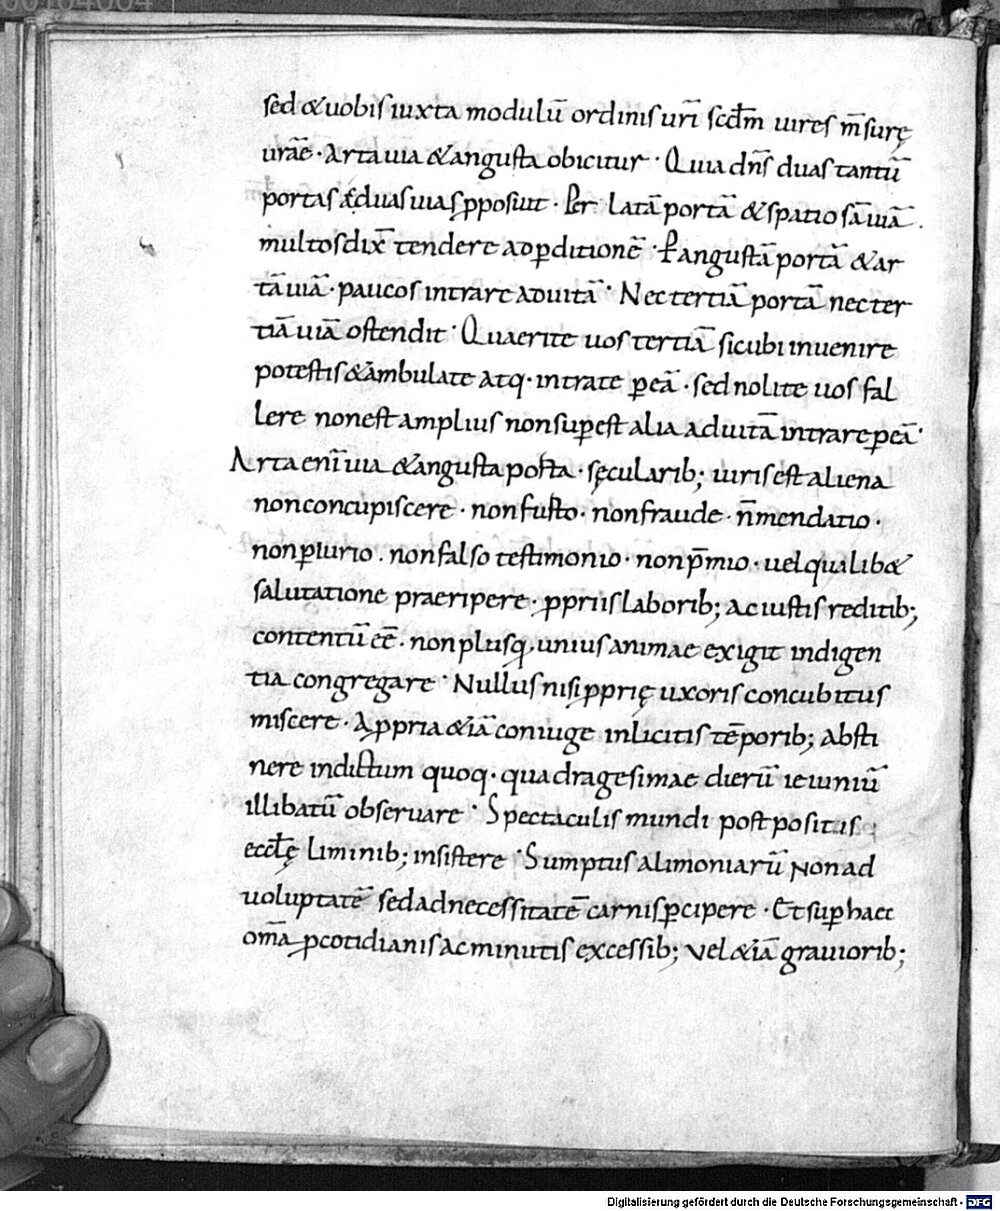 sed &uobis iuxta modulū ordinis urī scdm̄ uires m̄surę
urāe · Arta uia &angusta obicitur · Quia dn̄s duas tantū
portas & duas uias p̱posuit · Per latā portā &spatiosā uiā .
multos dix̄ tendere ad p̱ditionē · P̱ angustā portā &ar
tā uiā · paucos intrare ad uitā · Nec tertiā portā nec ter
tiā uiā ostendit · Quaerite uos tertiā sicubi inuenire
potestis &ambulate atq· intrate p̱ eā · sed nolite uos fal
lere non est amplius non sup̱est alia ad uitā intrare p̱ eā ·
Arta enī uia &angusta posta · sęcularib; uiris est aliena
non concupiscere · non furto · non fraude · n̄ mendatio ·
non p̱iurio . non falso testimonio · non p̄mio · uel qualib&
salutatione praeripere · p̱priis laborib; ac iustis reditib;
contentū eē · non plusq, unius animae exigit indigen
tia congregare · Nullus nisi p̱prię uxoris concubitus
miscere · A p̱pria &iā coniuge inlicitis tēporib; absti
nere indictum quoq· quadragesimae dierū ieiuniū
illibatū obseruare · Spectaculis mundi postpositis
eccłę liminib; insistere · Sumptus alimoniarū non ad
uoluptatē sed ad necessitatē carnis p̱cipere · Et sup̱ haec
om̄a p̱ cotidianis ac minutis excessib; vel &iā grauiorib;
Digitalisierung gefördert durch die Deutsche Forschungsgemeinschaft - DFG